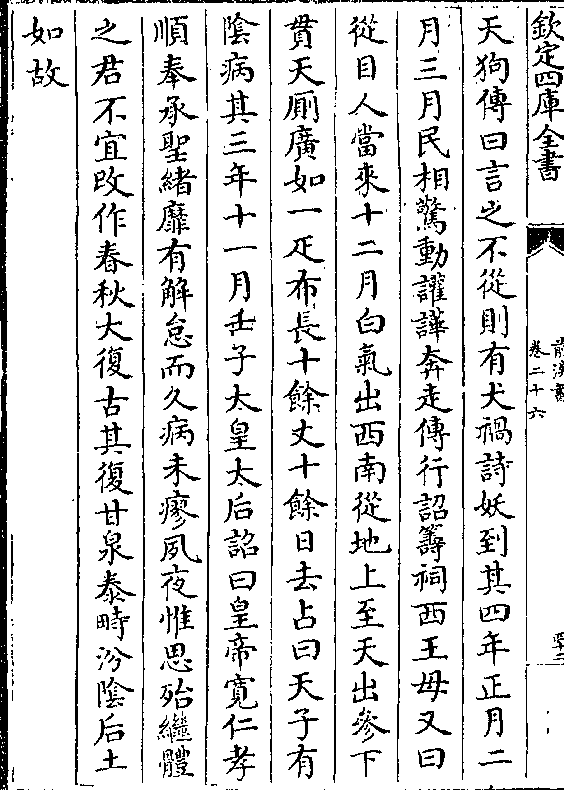 欽定四庫全書
前漢書
卷二十六
天狗傳曰言之不從則有犬禍詩妖到其四年正月二
月三月民相驚動讙譁奔走傳行詔籌祠西王母又曰
從目人當來十二月白氣出西南從地上至天出參下
貫天厠廣如一疋布長十餘丈十餘日去占曰天子有
陰病其三年十一月壬子太皇太后詔曰皇帝寛仁孝
順奉承聖緒靡有解怠而久病未瘳夙夜惟思殆繼體
之君不宜改作春秋大復古其復甘泉泰畤汾陰后土
如故